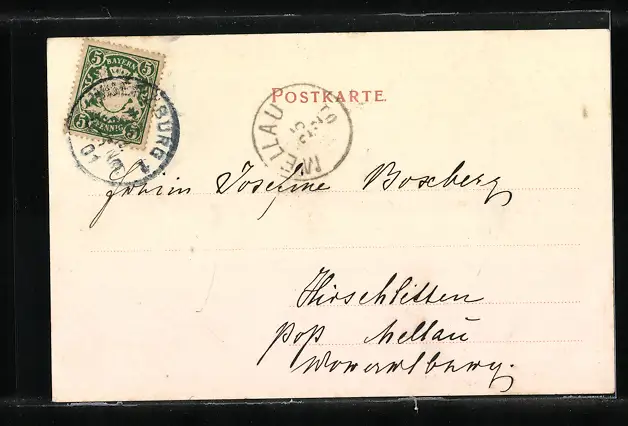 5 BAYERN 5
5 PFENNIG 5
BURG 1
01
POSTKARTE.
MELLAU
Josefine Boxberg
Hirschlitten
Mellau